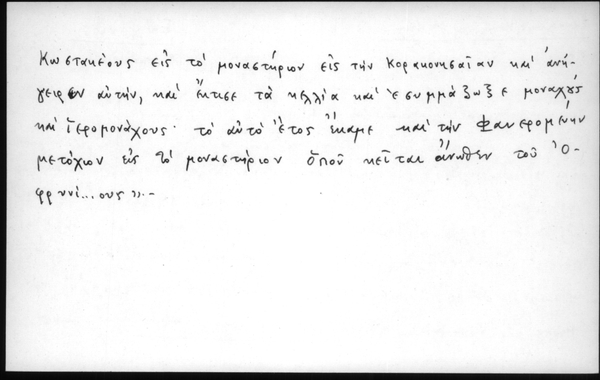 Κωστακέους εἰς τό μοναστήριον εἰς τήν Κορακονησαΐαν καί ἀνή-
γειρεν αὐτήν, καί ἔκτισε τά κελλία καί ἐσυμμάζωξε μοναχούς
καί ἱερομονάχους· τό αὐτό ἔτος ἔκαμε καί τήν Φανερομένην
μετόχιον εἰς τό μοναστήριον ὅπου κεῖται ἄνωθεν τοῦ Ὀ-
φρυνί...ους».-